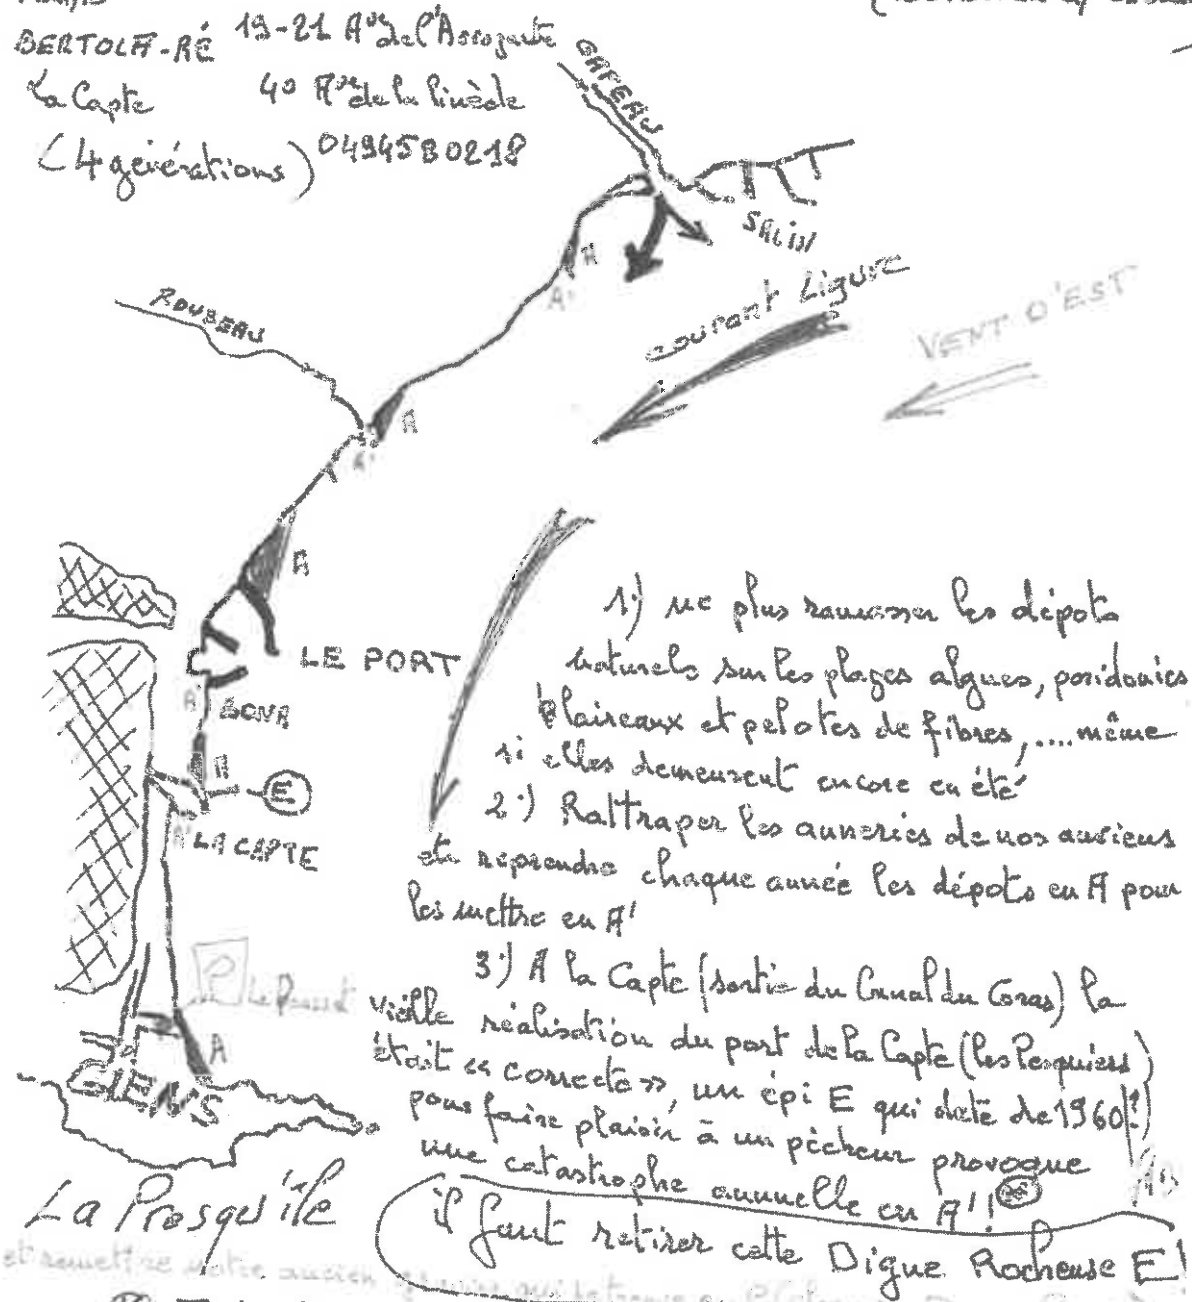 BERTOLA-RÉ 19-21 Ave de l'Arrogante
La Capte 40 Ave de la Pinède
(4 générations) 0494580218
GAPEAU
SALIN
A
A'
COURANT Ligure
VENT D'EST
ROUBEAU
A
A'
A
LE PORT
A'
BONA
A
E
A'
LA CAPTE
P
A
GIENS
La Presqu'île
1°) ne plus ramasser les dépots
naturels sur les plages algues, posidonies
blaireaux et pelotes de fibres,....même
si elles demeurent encore en été
2°) Rattraper les anneries de nos anciens
et reprendre chaque année les dépots en A pour
les mettre en A'
3°) A la Capte (sortie du Canal du Gras) la
vieille réalisation du port de la Capte (les Pesquiers)
était « correcte », un épi E qui date de 1960(?)
pour faire plaisir à un pêcheur provoque
une catastrophe annuelle en A'!
il faut retirer cette Digue Rocheuse E!
et remettre notre ancien